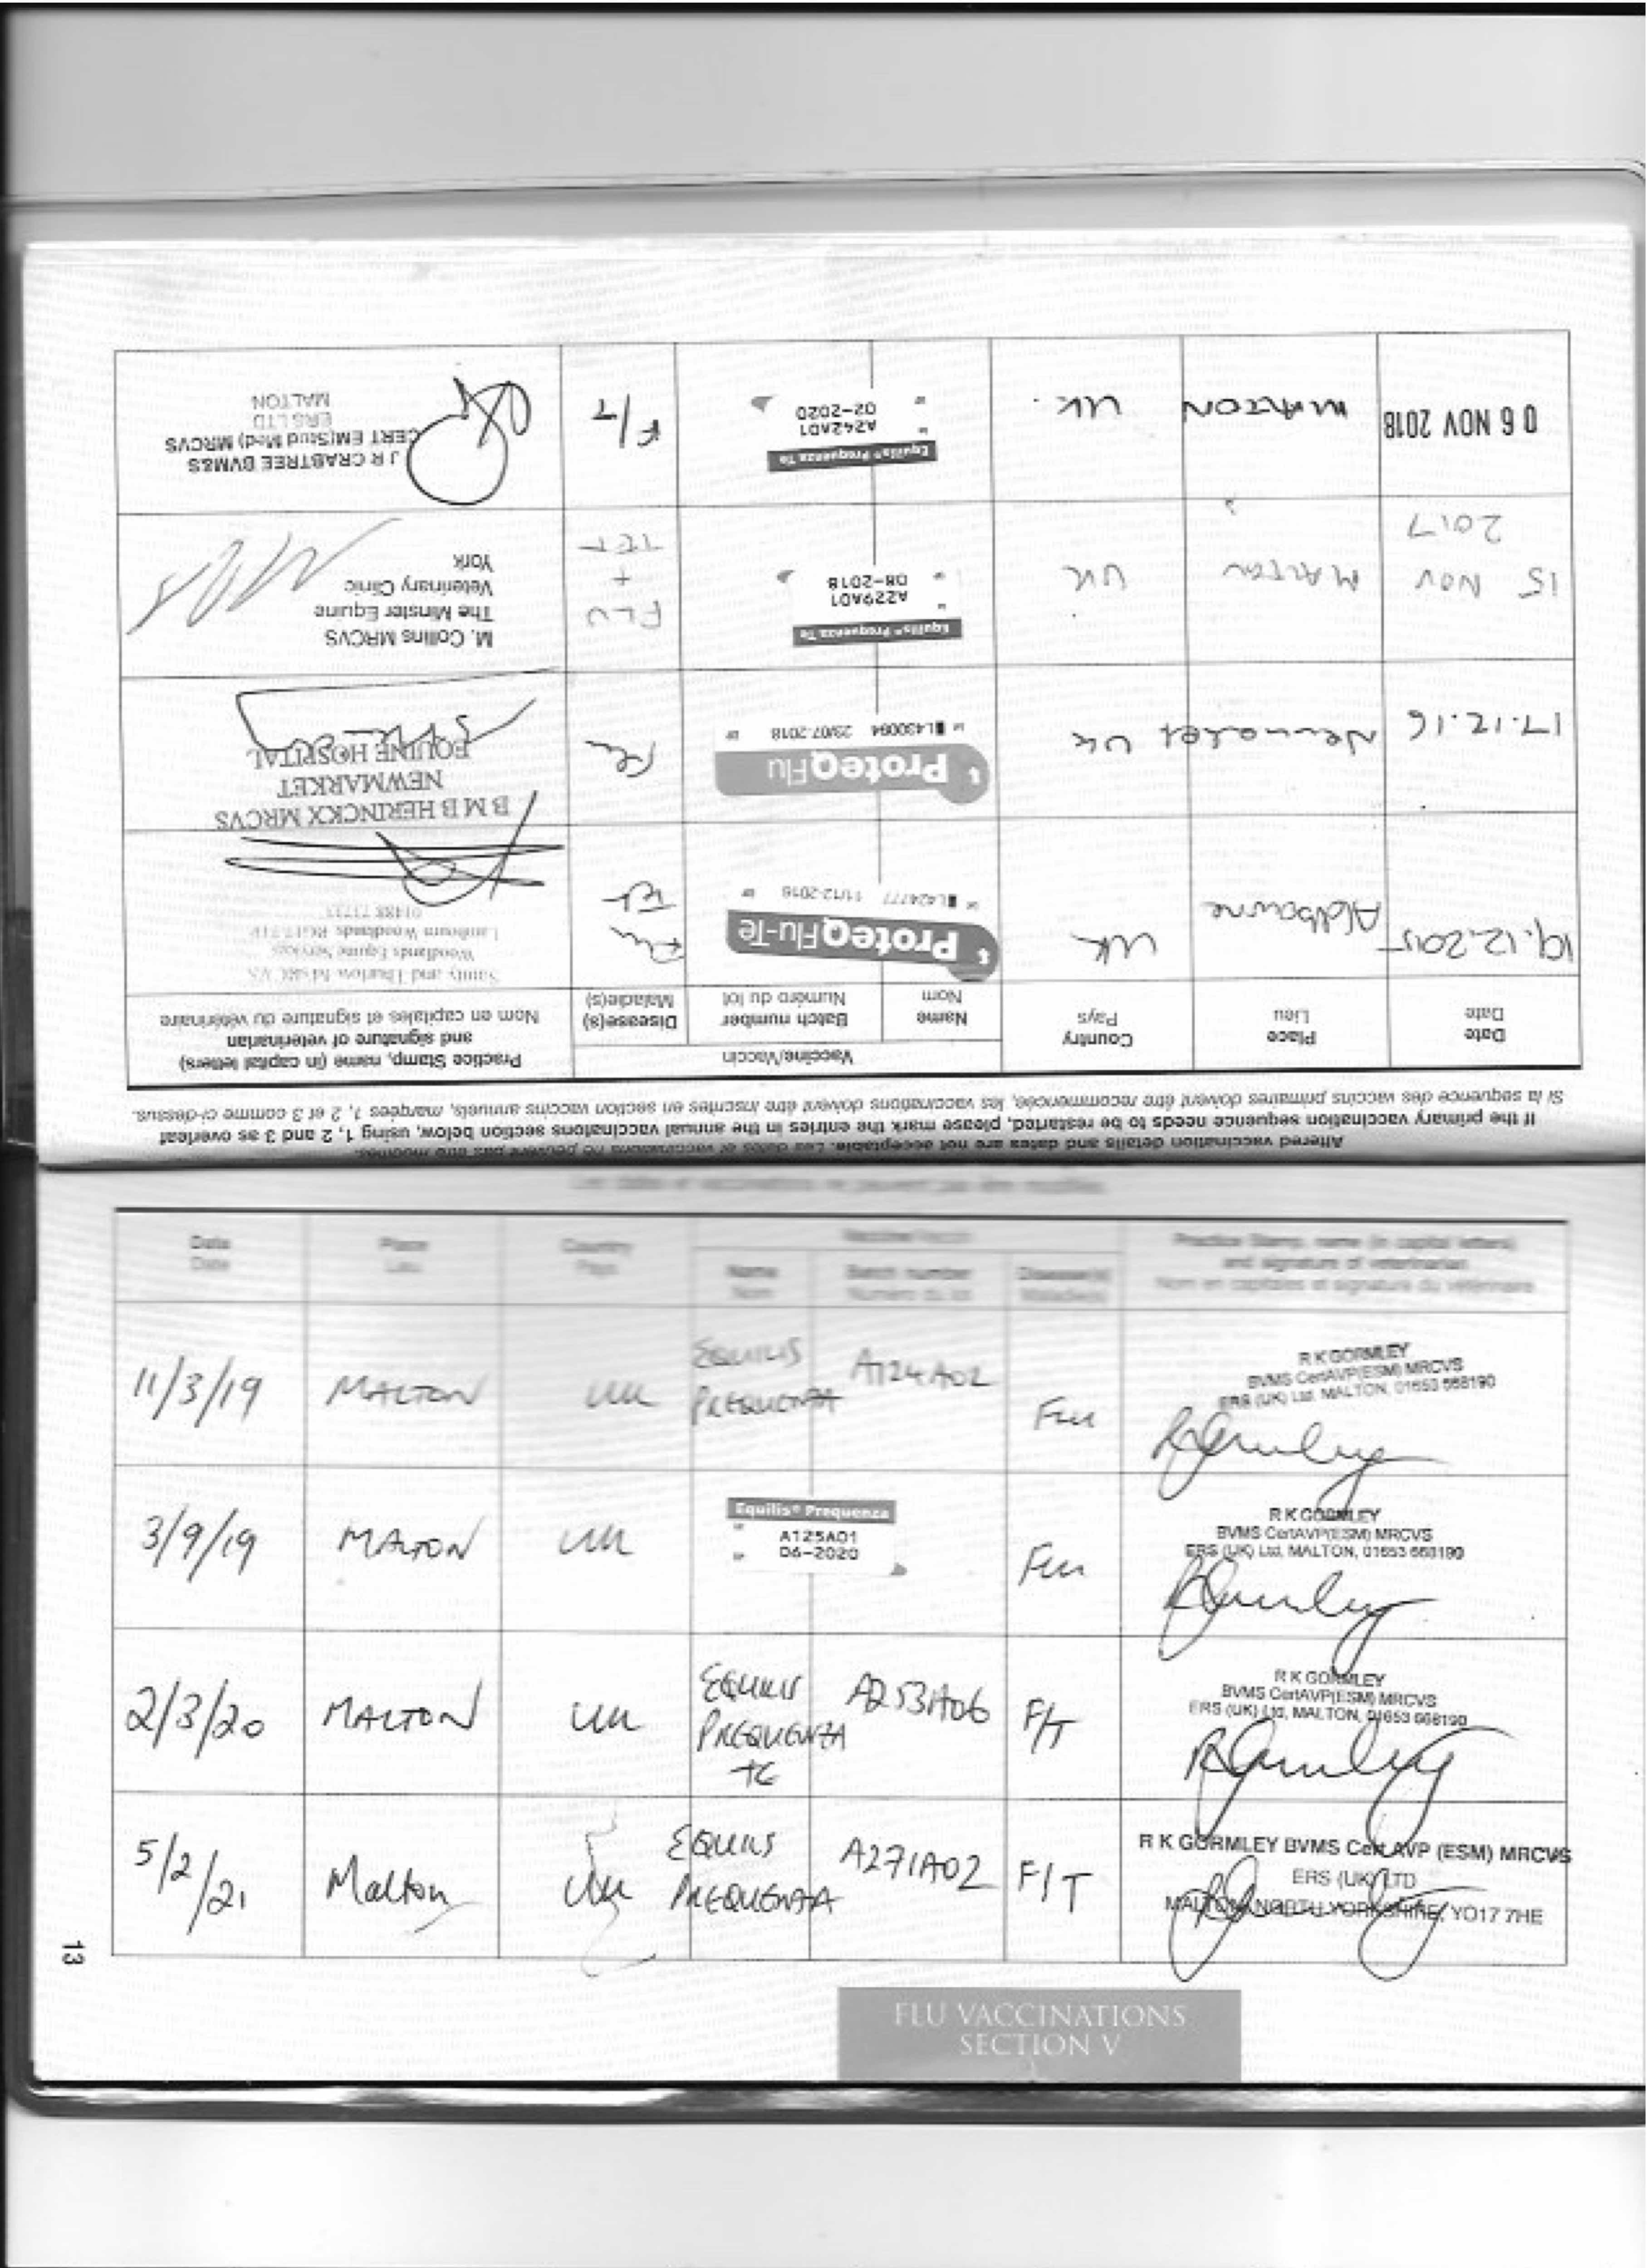 Altered vaccination details and dates are not acceptable. Les dates et vaccinations ne peuvent pas être modifiés.
If the primary vaccination sequence needs to be restarted, please mark the entries in the annual vaccinations section below, using 1, 2 and 3 as overleaf
Si la sequence des vaccins primaires doivent être recommencée, les vaccinations doivent être inscrites en section vaccins annuels, marqées 1, 2 et 3 comme ci-dessus.
Date
Date
Place
Lieu
Country
Pays
Vaccine/Vaccin
Name
Nom
Batch number
Numéro du lot
Disease(s)
Maladie(s)
Practice Stamp, name (in capital letters)
and signature of veterinarian
Nom en capitales et signature du vétérinaire
19.12.2015
Aldbourne
UK
ProteqFlu-Te
L424777 11/12-2016
Flu
Tet
Woodlands Equine Services
Lambourn Woodlands
17.12.16
Newmarket
UK
ProteqFlu
L430094 29/07-2018
Flu
B M B HERINCKX MRCVS
NEWMARKET
EQUINE HOSPITAL
15 NOV
2017
MALTON
UK
Equilis® Prequenza Te
A229A01
08-2018
FLU
+
TET
M. Collins MRCVS
The Minster Equine
Veterinary Clinic
York
06 NOV 2018
MALTON
UK.
Equilis® Prequenza Te
A242A01
02-2020
F/T
J R CRABTREE BVM&S
CERT EM(Stud Med) MRCVS
ERS LTD
MALTON
Les dates et vaccinations ne peuvent pas être modifiés.
Date
Date
Place
Lieu
Country
Pays
Vaccine/Vaccin
Name
Nom
Batch number
Numéro du lot
Disease(s)
Maladie(s)
Practice Stamp, name (in capital letters)
and signature of veterinarian
Nom en capitales et signature du vétérinaire
11/3/19
MALTON
UK
EQUILIS
PREQUENZA
A124A02
Flu
R K GORMLEY
BVMS CertAVP(ESM) MRCVS
ERS (UK) Ltd. MALTON, 01653 668190
3/9/19
MALTON
UK
Equilis® Prequenza
A125A01
06-2020
Flu
R K GORMLEY
BVMS CertAVP(ESM) MRCVS
ERS (UK) Ltd, MALTON, 01653 668190
2/3/20
MALTON
UK
EQUILIS
PREQUENZA
TE
A253A06
F/T
R K GORMLEY
BVMS CertAVP(ESM) MRCVS
ERS (UK) Ltd, MALTON, 01653 668190
5/2/21
Malton
UK
EQUILIS
PREQUENZA
A271A02
F/T
R K GORMLEY BVMS Cert AVP (ESM) MRCVS
ERS (UK) LTD
MALTON, NORTH YORKSHIRE, YO17 7HE
13
FLU VACCINATIONS
SECTION V